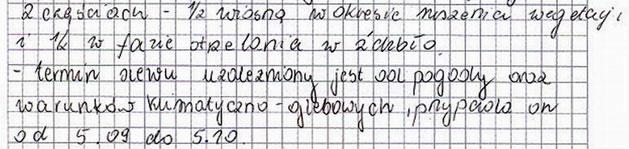 2 częściach - 1/2 wiosną w okresie ruszenia wegetacji
i 1/2 w fazie strzelania w źdźbło.
- termin siewu uzależniony jest od pogody oraz
warunków klimatyczno-glebowych, przypada on
od 5.09 do 5.10.